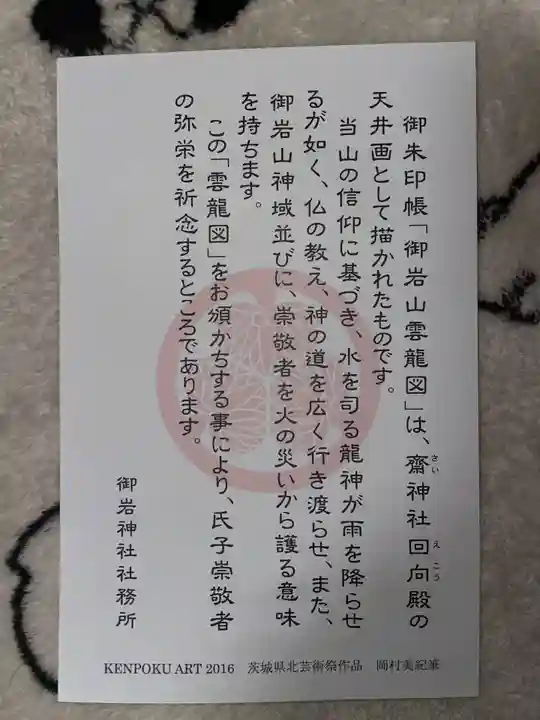 御朱印帳「御岩山雲龍図」は、齋神社回向殿の
さい
えこう
天井画として描かれたものです。
当山の信仰に基づき、水を司る龍神が雨を降らせ
るが如く、仏の教え、神の道を広く行き渡らせ、また、
御岩山神域並びに、崇敬者を火の災いから護る意味
を持ちます。
この「雲龍図」をお頒かちする事により、氏子崇敬者
の弥栄を祈念するところであります。
御岩神社社務所
KENPOKU ART 2016 茨城県北芸術祭作品 岡村美紀筆